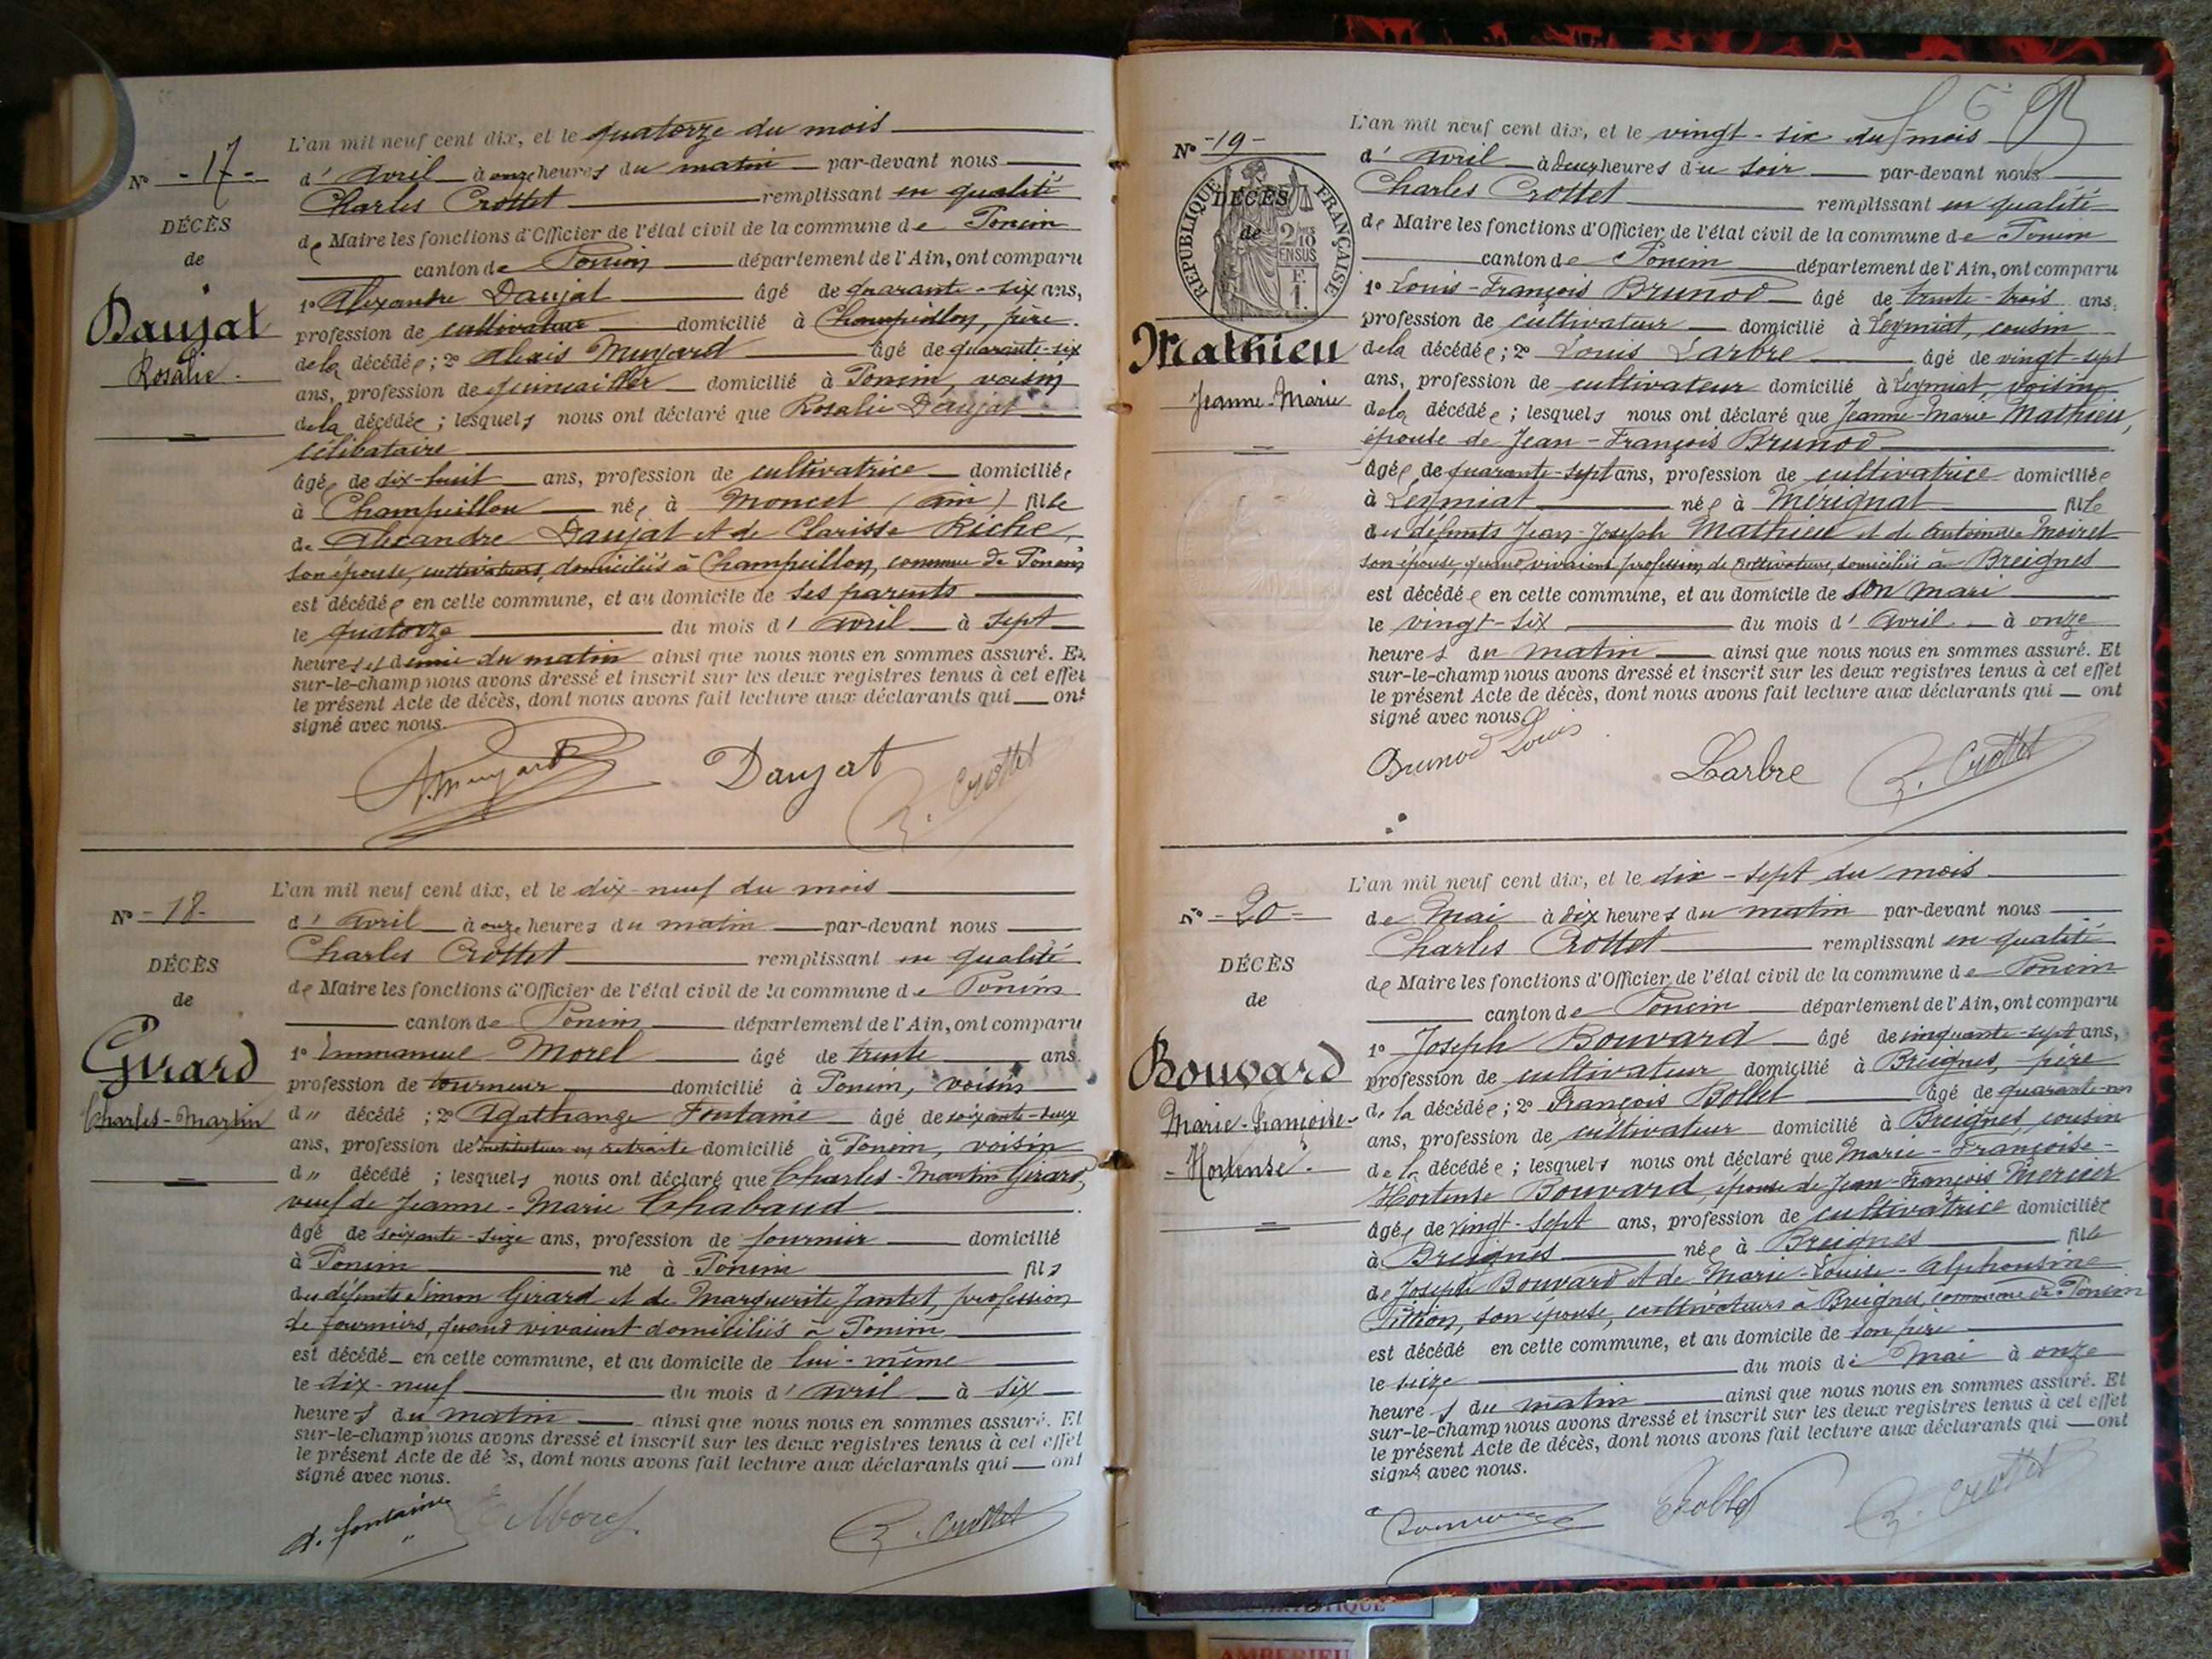 N° - 17 -
DÉCÈS
de
Daujat
Rosalie.
L'an mil neuf cent dix, et le quatorze du mois
d' avril à onze heures du matin par-devant nous
Charles Crottet remplissant en qualité
de Maire les fonctions d'Officier de l'état civil de la commune de Poncin
canton de Poncin département de l'Ain, ont comparu
1° Alexandre Daujat âgé de quarante-six ans,
profession de cultivateur domicilié à Champeillon, père
de la décédée; 2° Alexis Munard âgé de quarante-six
ans, profession de quincailler domicilié à Poncin, voisin
de la décédée; lesquels nous ont déclaré que Rosalie Daujat
célibataire
âgée de dix-huit ans, profession de cultivatrice domiciliée
à Champeillon née à Moncet (Ain) fille
de Alexandre Daujat et de Clarisse Riche,
son épouse, cultivateurs, domiciliés à Champeillon, commune de Poncin
est décédée en cette commune, et au domicile de ses parents
le quatorze du mois d' avril à sept
heures et demie du matin ainsi que nous nous en sommes assuré. Et
sur-le-champ nous avons dressé et inscrit sur les deux registres tenus à cet effet
le présent Acte de décès, dont nous avons fait lecture aux déclarants qui ont
signé avec nous.
Daujat C. Crottet
N° - 18 -
DÉCÈS
de
Girard
Charles-Martin
L'an mil neuf cent dix, et le dix-neuf du mois
d' avril à onze heures du matin par-devant nous
Charles Crottet remplissant en qualité
de Maire les fonctions d'Officier de l'état civil de la commune de Poncin
canton de Poncin département de l'Ain, ont comparu
1° Emmanuel Morel âgé de trente ans
profession de tourneur domicilié à Poncin, voisin
d" décédé; 2° Agathange Fontaine âgé de soixante-deux
ans, profession de instituteur en retraite domicilié à Poncin, voisin
d" décédé; lesquels nous ont déclaré que Charles-Martin Girard,
veuf de Jeanne-Marie Chabaud
âgé de soixante-seize ans, profession de fournier domicilié
à Poncin né à Poncin fils
des défunts Simon Girard et de Marguerite Jantet, profession
de fourniers, quand vivaient domiciliés à Poncin
est décédé en cette commune, et au domicile de lui-même
le dix-neuf du mois d' avril à six
heures du matin ainsi que nous nous en sommes assuré. Et
sur-le-champ nous avons dressé et inscrit sur les deux registres tenus à cet effet
le présent Acte de décès, dont nous avons fait lecture aux déclarants qui ont
signé avec nous.
A. fontaine E Morel C. Crottet
N° - 19 -
RÉPUBLIQUE FRANÇAISE
DÉCÈS
de
Mathieu
Jeanne-Marie
L'an mil neuf cent dix, et le vingt-six du mois
d' avril à deux heures du soir par-devant nous
Charles Crottet remplissant en qualité
de Maire les fonctions d'Officier de l'état civil de la commune de Poncin
canton de Poncin département de l'Ain, ont comparu
1° Louis-François Brunod âgé de trente-trois ans,
profession de cultivateur domicilié à Leymiat, cousin
de la décédée; 2° Louis Larbre âgé de vingt-sept
ans, profession de cultivateur domicilié à Leymiat, voisin
de la décédée; lesquels nous ont déclaré que Jeanne-Marie Mathieu,
épouse de Jean-François Brunod
âgée de quarante-sept ans, profession de cultivatrice domiciliée
à Leymiat née à Mérignat fille
des défunts Jean-Joseph Mathieu et de Antoinette Moiret
son épouse, quand vivaient profession de cultivateurs, domiciliés à Breignes
est décédée en cette commune, et au domicile de son mari
le vingt-six du mois d' avril à onze
heures du matin ainsi que nous nous en sommes assuré. Et
sur-le-champ nous avons dressé et inscrit sur les deux registres tenus à cet effet
le présent Acte de décès, dont nous avons fait lecture aux déclarants qui ont
signé avec nous
Brunod Louis Larbre C. Crottet
N° - 20 -
DÉCÈS
de
Bouvard
Marie-Françoise-
-Hortense.
L'an mil neuf cent dix, et le dix-sept du mois
de Mai à dix heures du matin par-devant nous
Charles Crottet remplissant en qualité
de Maire les fonctions d'Officier de l'état civil de la commune de Poncin
canton de Poncin département de l'Ain, ont comparu
1° Joseph Bouvard âgé de cinquante-sept ans,
profession de cultivateur domicilié à Breignes, père
de la décédée; 2° François Bollet âgé de quarante-un
ans, profession de cultivateur domicilié à Breignes, cousin
de la décédée; lesquels nous ont déclaré que Marie-Françoise-
Hortense Bouvard, épouse de Jean-François Mercier
âgée de vingt-sept ans, profession de cultivatrice domiciliée
à Breignes née à Breignes fille
de Joseph Bouvard et de Marie-Louise-Alphonsine
son épouse, cultivateurs à Breignes, commune de Poncin
est décédé en cette commune, et au domicile de son père
le seize du mois de Mai à onze
heures du matin ainsi que nous nous en sommes assuré. Et
sur-le-champ nous avons dressé et inscrit sur les deux registres tenus à cet effet
le présent Acte de décès, dont nous avons fait lecture aux déclarants qui ont
signé avec nous.
C. Crottet
AMBERIEU